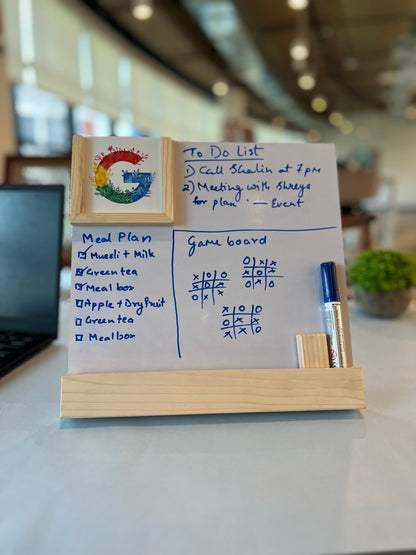 To Do List
1) Call Shalin at 7pm
2) Meeting with Shreys
for plan · — Event
Meal Plan
☑ Muesli + Milk
☑ Green tea
☑ Meal box
☐ Apple + Dry fruit
☐ Green tea
☐ Meal box
Game board
O X X
X O X
O X O
X O O
X O X
O X X
X O O
O X X
X X O